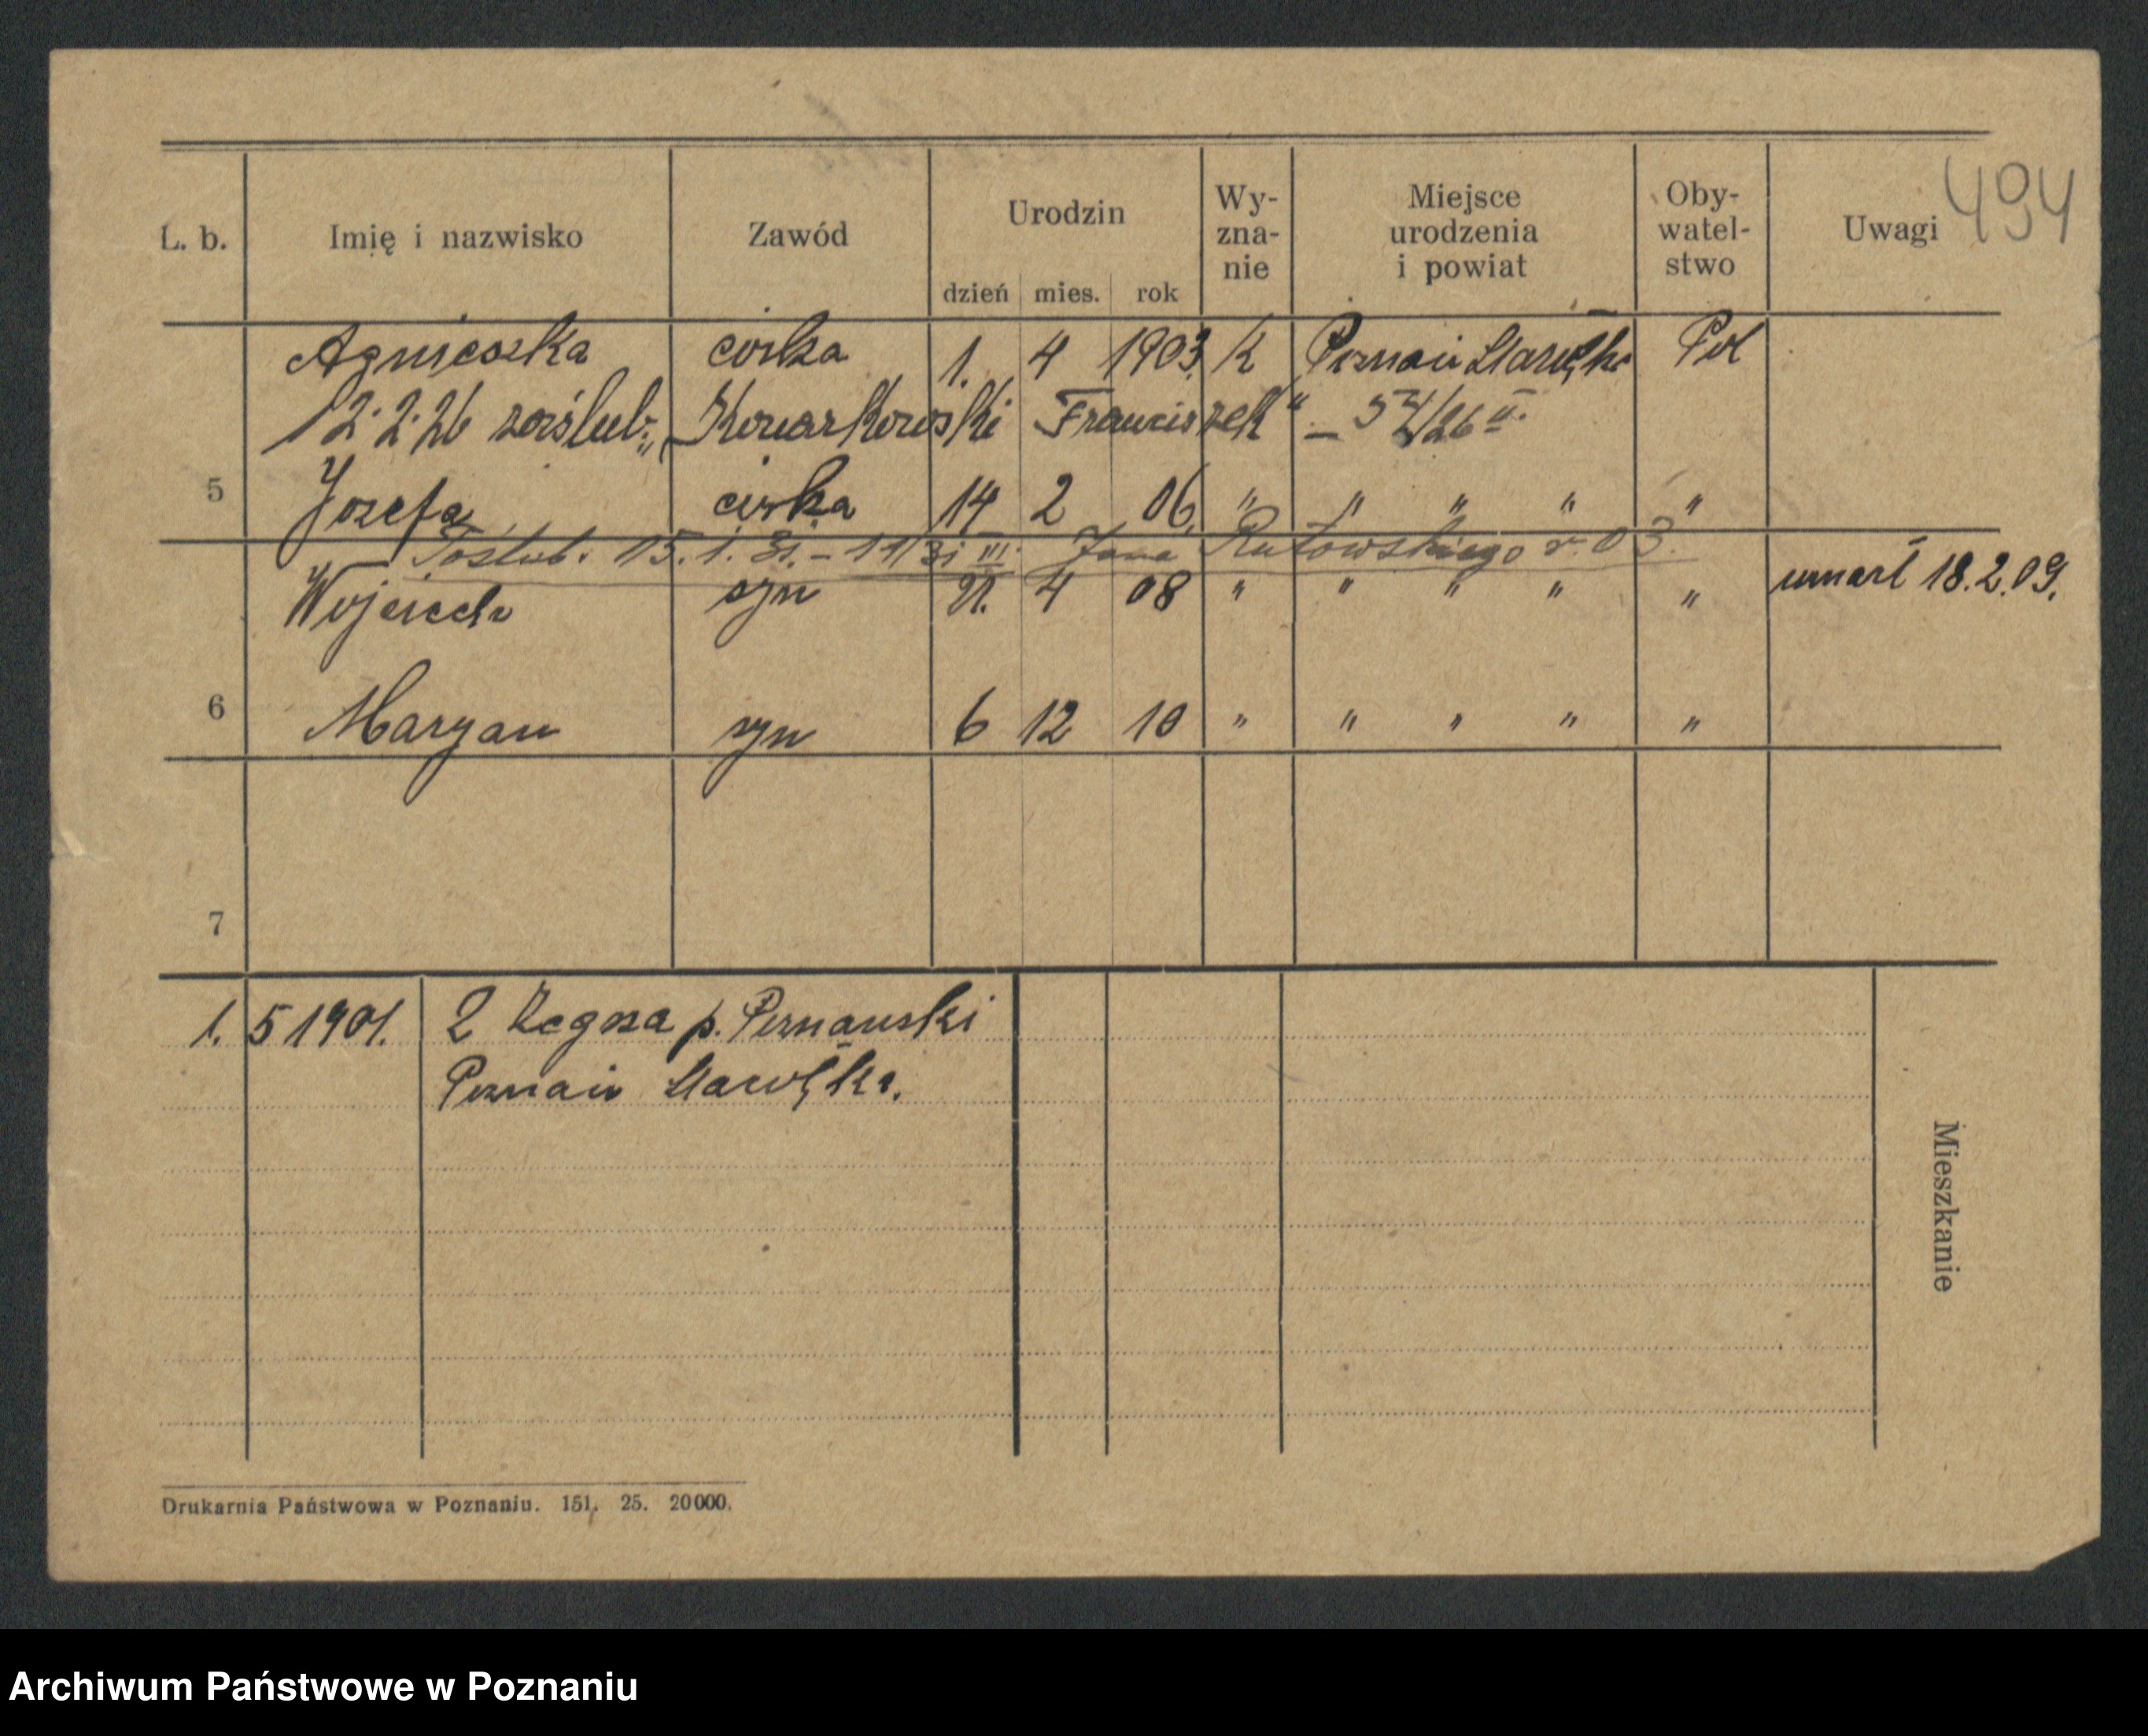 494
L. b. Imię i nazwisko Zawód Urodzin dzień mies. rok Wy-zna-nie Miejsce urodzenia i powiat Oby-watel-stwo Uwagi
Agnieszka córka 1. 4 1903. K Poznań Starołęka Pol
12.2.26 zaślub: „Konarkowski Franciszek“ – 57/26 II.
5 Jozefa córka 14 2 06. " " " " "
Poślub. 15.1.31. – 11/31 III. Jana Rutowskiego r. 03.
Wojciech syn 21. 4 08 " " " " " umarł 18.2.09.
6 Maryan syn 6 12 10 " " " " "
7
1. 5 1901. 2 Zegrza p. Poznański
Poznań Starołęka.
Mieszkanie
Drukarnia Państwowa w Poznaniu. 151. 25. 20000.
Archiwum Państwowe w Poznaniu